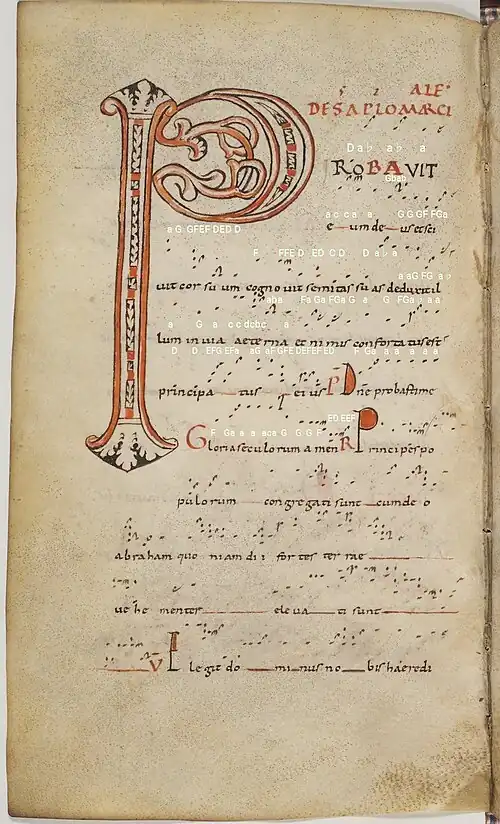 ALE
DE S APLO MARCI
D a b ab a
PROBAVIT
Gbab
a c c a a G G GF FGa
e um de us et sci
a G GFEF DED D
F FFE D ED C D D a b a
vit cor su um cogno vit semitas su as deduxit il
a aG FG a b
aba Fa Ga FGa G a G FGa a a
lum in via aeterna et nimis confortatus est
a G a c c dcbc a
D D EFG EFa aG aF GFE DEFEF ED F Ga a a a a a
principa tus e i us P Dne probasti me
ED EEF
F Ga a a aca G G G F
Gloria seculorum amen R Principes po
pulorum congregati sunt cum de o
abraham quo niam di i for tes ter rae
ve he menter ele va ti sunt
V Elegit do mi nus no bis haeredi